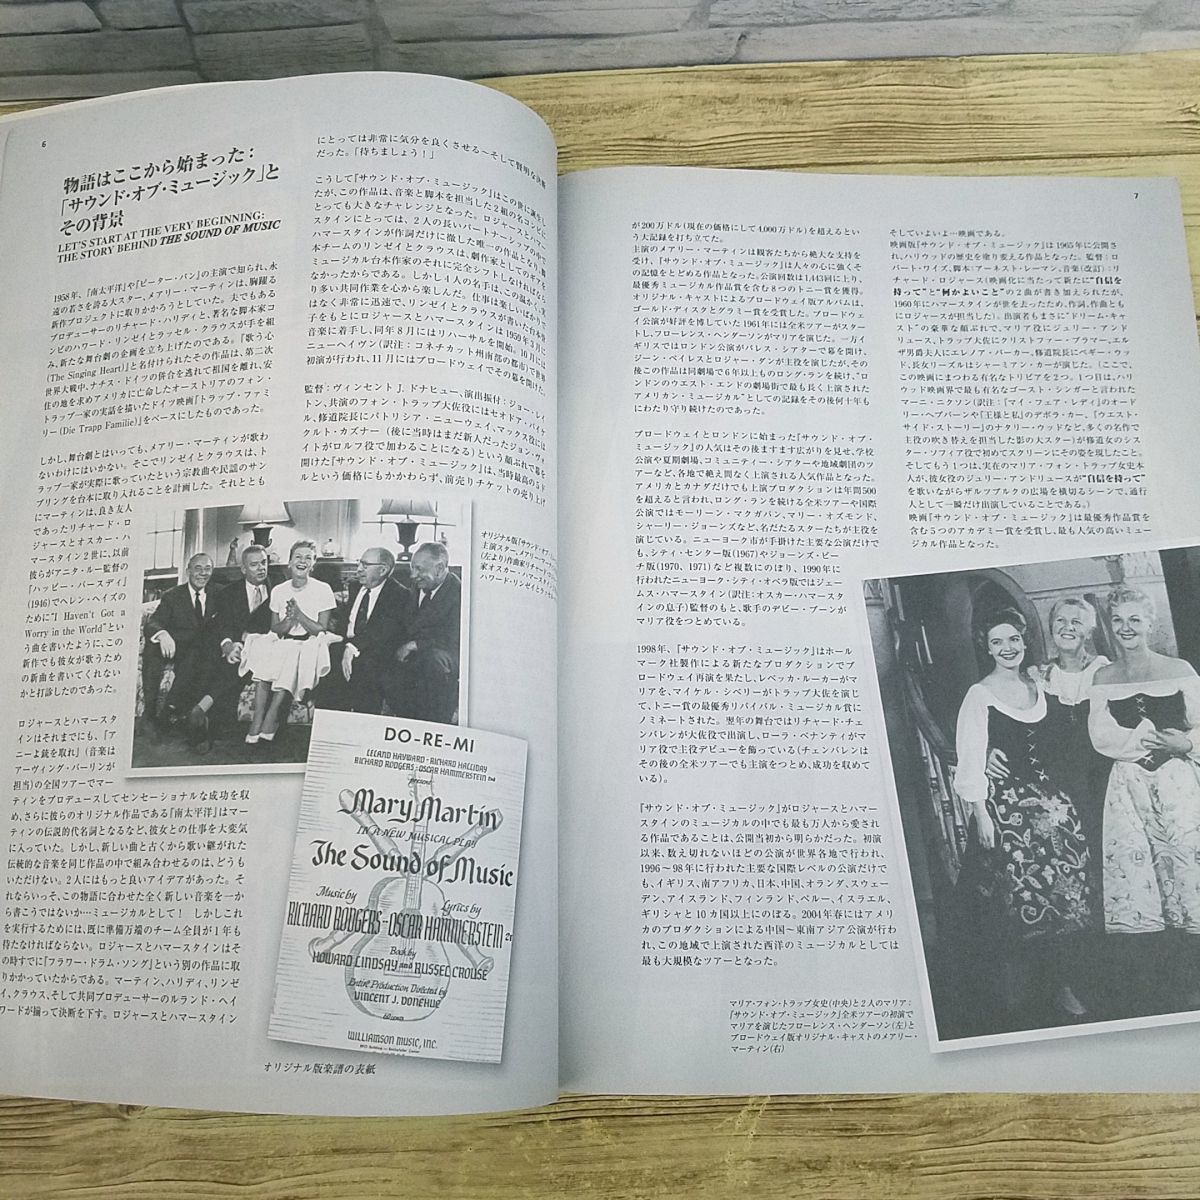 6
物語はここから始まった：
「サウンド・オブ・ミュージック」と
その背景
LET'S START AT THE VERY BEGINNING:
THE STORY BEHIND THE SOUND OF MUSIC
1958年、『南太平洋』や『ピーター・パン』の主演で知られ、永
遠の若さを誇る大スター、メアリー・マーティンは、胸躍る
新作プロジェクトに取りかかろうとしていた。夫でもある
プロデューサーのリチャード・ハリディと、著名な脚本家コ
ンビのハワード・リンゼイとラッセル・クラウスが手を組
み、新たな舞台劇の企画を立ち上げたのである。『歌う心
(The Singing Heart)』と名付けられたその作品は、第二次
世界大戦中、ナチス・ドイツの併合を逃れて祖国を離れ、安
住の地を求めアメリカに亡命したオーストリアのフォン・
トラップ一家の実話を描いたドイツ映画『トラップ・ファミ
リー(Die Trapp Familie)』をベースにしたものであった。
しかし、舞台劇とはいっても、メアリー・マーティンが歌わ
ないわけにはいかない。そこでリンゼイとクラウスは、ト
ラップ一家が実際に歌っていたという宗教曲や民謡のサン
プリングを台本に取り入れることを計画した。それととも
にマーティンは、良き友人
であったリチャード・ロ
ジャースとオスカー・ハ
マースタイン2世に、以前
彼らがアニタ・ルー監督の
『ハッピー・バースデイ』
(1946)でヘレン・ヘイズの
ために"I Haven't Got a
Worry in the World"とい
う曲を書いたように、この
新作でも彼女が歌うため
の新曲を書いてくれない
かと打診したのであった。
ロジャースとハマースタ
インはそれまでにも、『ア
ニーよ銃を取れ』(音楽は
アーヴィング・バーリンが
担当)の全国ツアーでマー
ティンをプロデュースしてセンセーショナルな成功を収
め、さらに彼らのオリジナル作品である『南太平洋』はマー
ティンの伝説的代名詞となるなど、彼女との仕事を大変気
に入っていた。しかし、新しい曲と古くから歌い継がれた
伝統的な音楽を同じ作品の中で組み合わせるのは、どうも
いただけない。2人にはもっと良いアイデアがあった。そ
れならいっそ、この物語に合わせた全く新しい音楽を一か
ら書こうではないか…ミュージカルとして！ しかしこれ
を実行するためには、既に準備万端のチーム全員が1年も
待たなければならない。ロジャースとハマースタインはそ
の時すでに『フラワー・ドラム・ソング』という別の作品に取
りかかっていたからである。マーティン、ハリディ、リンゼ
イ、クラウス、そして共同プロデューサーのルランド・ヘイ
ワードが揃って決断を下す。ロジャースとハマースタイン
にとっては非常に気分を良くさせる〜そして賢明な決断
だった。「待ちましょう！」
こうして『サウンド・オブ・ミュージック』はこの世に誕生し
たが、この作品は、音楽と脚本を担当した2組の名コンビに
とっても大きなチャレンジとなった。ロジャースとハマー
スタインにとっては、2人の長いパートナーシップの中で
ハマースタインが作詞だけに徹した唯一の作品となり、脚
本チームのリンゼイとクラウスは、劇作家としてのギアを
ミュージカル台本作家のそれに完全シフトしなければなら
なかったからである。しかし4人の名手は、この温かく、実
り多い共同作業を心から楽しんだ。仕事は楽しいばかりで
はなく非常に迅速で、リンゼイとクラウスが書いた台本冊
子をもとにロジャースとハマースタインは1959年3月に
音楽に着手し、同年8月にはリハーサルを開始。10月には
ニューヘイヴン(訳注：コネチカット州南部の都市)で世界
初演が行われ、11月にはブロードウェイでその幕を開けた。
監督：ヴィンセント J. ドナヒュー、演出振付：ジョー・レイ
トン、共演のフォン・トラップ大佐役にはセオドア・バイケ
ル、修道院長にパトリシア・ニューウェイ、マックス役には
クルト・カズナー(後に当時はまだ新人だったジョン・ヴォ
イトがロルフ役で加わることになる)という顔ぶれで幕を
開けた『サウンド・オブ・ミュージック』は、当時最高の5ド
ルという価格にもかかわらず、前売りチケットの売り上げ
オリジナル版『サウンド・オブ・
主演スター、メアリー・
(左より)作曲家リチャード・
家オスカー・ハマース
ハワード・リンゼイと
DO-RE-MI
LELAND HAYWARD - RICHARD HALLIDAY
RICHARD RODGERS - OSCAR HAMMERSTEIN 2nd
present
Mary Martin
IN A NEW MUSICAL PLAY
The Sound of Music
Music by
Lyrics by
RICHARD RODGERS - OSCAR HAMMERSTEIN 2nd
Book by
HOWARD LINDSAY and RUSSEL CROUSE
Entire Production Directed by
VINCENT J. DONEHUE
WILLIAMSON MUSIC, INC.
オリジナル版楽譜の表紙
7
が200万ドル(現在の価格にして4,000万ドル)を超えるとい
う大記録を打ち立てた。
主演のメアリー・マーティンは観客たちから絶大な支持を
受け、『サウンド・オブ・ミュージック』は人々の心に強くそ
の記憶をとどめる作品となった。公演回数は1,443回に上り、
最優秀ミュージカル作品賞を含む8つのトニー賞を獲得。
オリジナル・キャストによるブロードウェイ版アルバムは、
ゴールド・ディスクとグラミー賞を受賞した。ブロードウェ
イ公演が好評を博していた1961年には全米ツアーがスター
トし、フローレンス・ヘンダーソンがマリアを演じた。一方イ
ギリスではロンドン公演がパレス・シアターで幕を開け、
ジーン・ベイレスとロジャー・ダンが主役を演じたが、その
後この作品は同劇場で6年以上ものロング・ランを続け、"ロ
ンドンのウエスト・エンドの劇場街で最も長く上演された
アメリカン・ミュージカル"としての記録をその後何十年も
にわたり守り続けたのであった。
ブロードウェイとロンドンに始まった『サウンド・オブ・
ミュージック』の人気はその後ますます広がりを見せ、学校
公演や夏期劇場、コミュニティー・シアターや地域劇団のツ
アーなど、各地で絶え間なく上演される人気作品となった。
アメリカとカナダだけでも上演プロダクションは年間500
を超えると言われ、ロング・ランを続ける全米ツアーや国際
公演ではモーリーン・マクガバン、マリー・オズモンド、
シャーリー・ジョーンズなど、名だたるスターたちが主役を
演じている。ニューヨーク市が手掛けた主要な公演だけで
も、シティ・センター版(1967)やジョーンズ・ビー
チ版(1970、1971)など複数にのぼり、1990年に
行われたニューヨーク・シティ・オペラ版ではジェー
ムス・ハマースタイン(訳注：オスカー・ハマースタ
インの息子)監督のもと、歌手のデビー・ブーンが
マリア役をつとめている。
1998年、『サウンド・オブ・ミュージック』はホール
マーク社製作による新たなプロダクションでブ
ロードウェイ再演を果たし、レベッカ・ルーカーがマ
リアを、マイケル・シベリーがトラップ大佐を演じ
て、トニー賞の最優秀リバイバル・ミュージカル賞に
ノミネートされた。翌年の舞台ではリチャード・チェ
ンバレンが大佐役で出演し、ローラ・ベナンティがマ
リア役で主役デビューを飾っている(チェンバレンは
その後の全米ツアーでも主演をつとめ、成功を収めて
いる)。
『サウンド・オブ・ミュージック』がロジャースとハマー
スタインのミュージカルの中でも最も万人から愛され
る作品であることは、公開当初から明らかだった。初演
以来、数え切れないほどの公演が世界各地で行われ、
1996〜98年に行われた主要な国際レベルの公演だけで
も、イギリス、南アフリカ、日本、中国、オランダ、スウェー
デン、アイスランド、フィンランド、ペルー、イスラエル、
ギリシャと10カ国以上にのぼる。2004年春にはアメリ
カのプロダクションによる中国〜東南アジア公演が行わ
れ、この地域で上演された西洋のミュージカルとしては
最も大規模なツアーとなった。
そしていよいよ…映画である。
映画版『サウンド・オブ・ミュージック』は1965年に公開さ
れ、ハリウッドの歴史を塗り変える作品となった。監督：ロ
バート・ワイズ、脚本：アーネスト・レーマン、音楽(改訂)：リ
チャード・ロジャース(映画化に当たって新たに"自信を
持って"と"何かよいこと"の2曲が書き加えられたが、
1960年にハマースタインが世を去ったため、作詞、作曲とも
にロジャースが担当した)。出演者もまさに"ドリーム・キャ
スト"の豪華な顔ぶれで、マリア役にジュリー・アンド
リュース、トラップ大佐にクリストファー・プラマー、エル
ザ男爵夫人にエレノア・パーカー、修道院長にペギー・ウッ
ド、長女リーズルはシャーミアン・カーが演じた。(ここで、
この映画にまつわる有名なトリビアを2つ。1つ目は、ハリ
ウッド映画界で最も有名なゴースト・シンガーと言われた
マーニ・ニクソン(訳注：『マイ・フェア・レディ』のオードリ
ー・ヘプバーンや『王様と私』のデボラ・カー、『ウエスト・
サイド・ストーリー』のナタリー・ウッドなど、多くの名作で
主役の吹き替えを担当した影の大スター)が修道女のシス
ター・ソフィア役で初めてスクリーンにその姿を現したこと。
そしてもう1つは、実在のマリア・フォン・トラップ女史本
人が、彼女役のジュリー・アンドリュースが"自信を持って"
を歌いながらザルツブルクの広場を横切るシーンで、通行
人として一瞬だけ出演していることである。)
映画『サウンド・オブ・ミュージック』は最優秀作品賞を
含む5つのアカデミー賞を受賞し、最も人気の高いミュー
ジカル作品となった。
マリア・フォン・トラップ女史(中央)と2人のマリア：
『サウンド・オブ・ミュージック』全米ツアーの初演で
マリアを演じたフローレンス・ヘンダーソン(左)と
ブロードウェイ版オリジナル・キャストのメアリー・
マーティン(右)